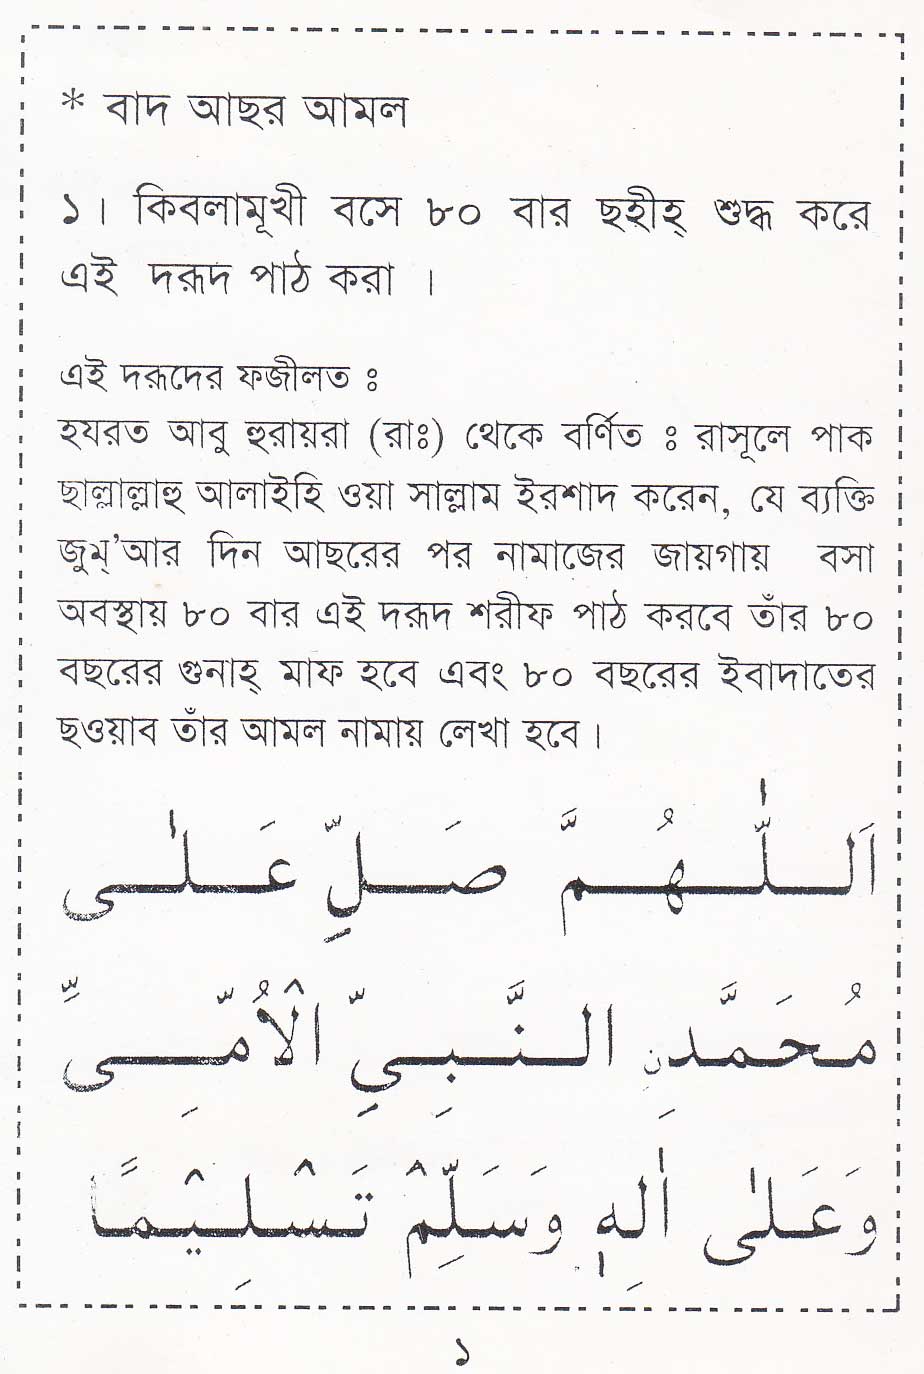 * বাদ আছর আমল
১। কিবলামূখী বসে ৮০ বার ছহীহ্ শুদ্ধ করে
এই দরূদ পাঠ করা ।
এই দরূদের ফজীলত ঃ
হযরত আবু হুরায়রা (রাঃ) থেকে বর্ণিত ঃ রাসূলে পাক
ছাল্লাল্লাহু আলাইহি ওয়া সাল্লাম ইরশাদ করেন, যে ব্যক্তি
জুম্'আর দিন আছরের পর নামাজের জায়গায় বসা
অবস্থায় ৮০ বার এই দরূদ শরীফ পাঠ করবে তাঁর ৮০
বছরের গুনাহ্ মাফ হবে এবং ৮০ বছরের ইবাদাতের
ছওয়াব তাঁর আমল নামায় লেখা হবে।
اَللّٰهُمَّ صَلِّ عَلٰى
مُحَمَّدِنِ النَّبِيِّ الْاُمِّىِّ
وَعَلٰى اٰلِهٖ وَسَلِّمْ تَسْلِيْمًا
১